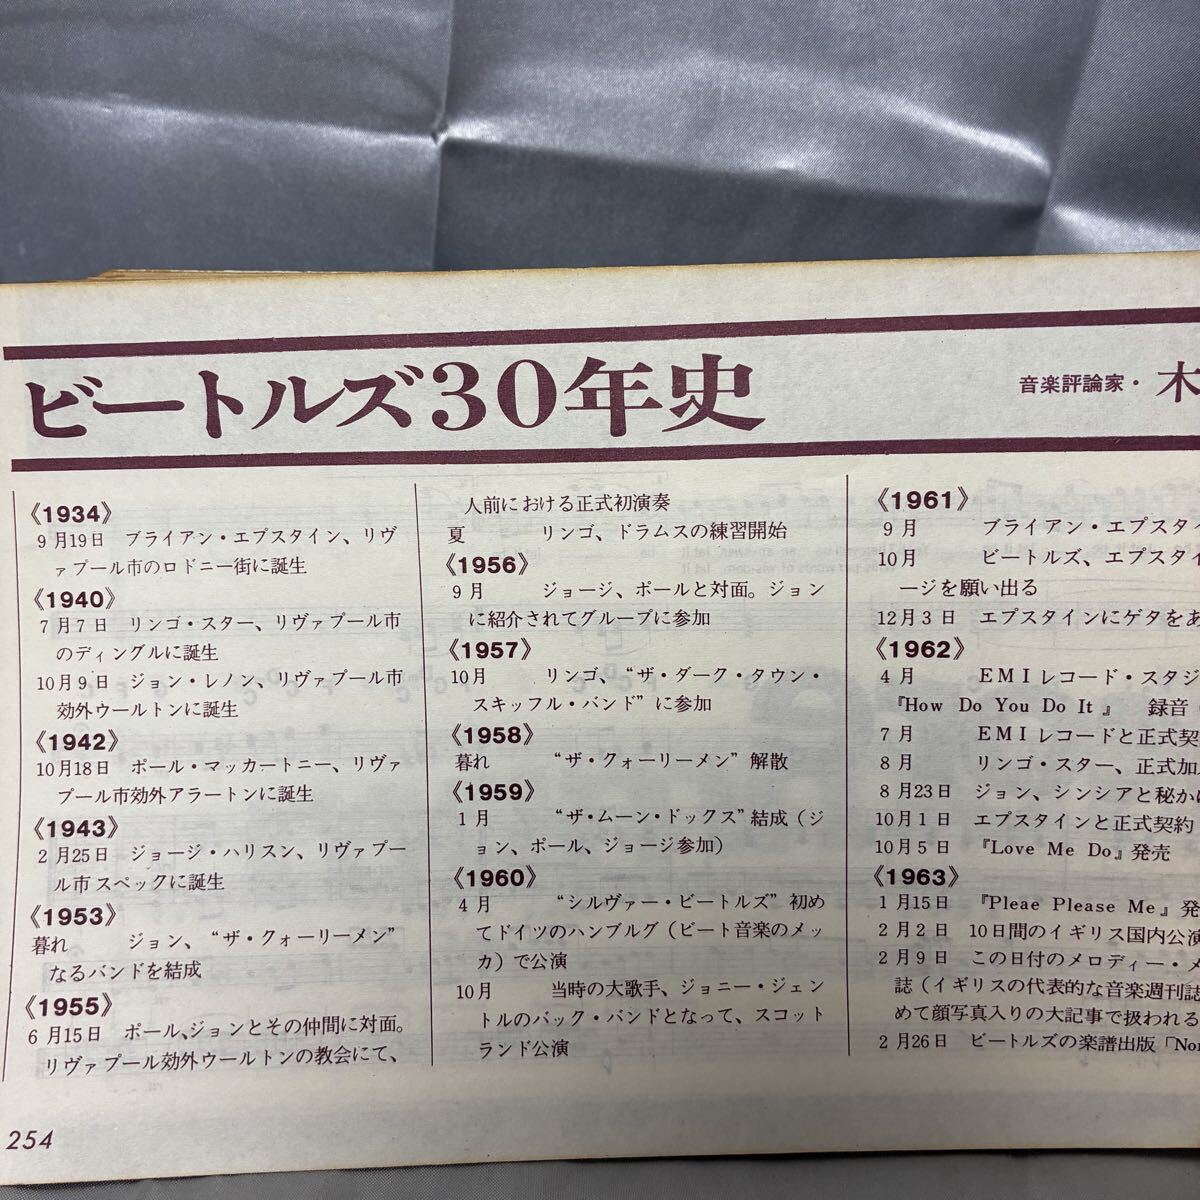 ビートルズ30年史
音楽評論家・木
《1934》
9月19日 ブライアン・エプスタイン、リヴ
ァプール市のロドニー街に誕生
《1940》
7月7日 リンゴ・スター、リヴァプール市
のディングルに誕生
10月9日 ジョン・レノン、リヴァプール市
効外ウールトンに誕生
《1942》
10月18日 ポール・マッカートニー、リヴァ
プール市効外アラートンに誕生
《1943》
2月25日 ジョージ・ハリスン、リヴァプー
ル市スペックに誕生
《1953》
暮れ ジョン、“ザ・クォーリーメン”
なるバンドを結成
《1955》
6月15日 ポール、ジョンとその仲間に対面。
リヴァプール効外ウールトンの教会にて、
人前における正式初演奏
夏 リンゴ、ドラムスの練習開始
《1956》
9月 ジョージ、ポールと対面。ジョン
に紹介されてグループに参加
《1957》
10月 リンゴ、“ザ・ダーク・タウン・
スキッフル・バンド”に参加
《1958》
暮れ “ザ・クォーリーメン”解散
《1959》
1月 “ザ・ムーン・ドックス”結成（ジ
ョン、ポール、ジョージ参加）
《1960》
4月 “シルヴァー・ビートルズ”初め
てドイツのハンブルグ（ビート音楽のメッ
カ）で公演
10月 当時の大歌手、ジョニー・ジェン
トルのバック・バンドとなって、スコット
ランド公演
《1961》
9月 ブライアン・エプスタ
10月 ビートルズ、エプスタイ
ージを願い出る
12月3日 エプスタインにゲタをあ
《1962》
4月 EMIレコード・スタジ
『How Do You Do It』 録音
7月 EMIレコードと正式契
8月 リンゴ・スター、正式加
8月23日 ジョン、シンシアと秘か
10月1日 エプスタインと正式契約
10月5日 『Love Me Do』発売
《1963》
1月15日 『Pleae Please Me』発
2月2日 10日間のイギリス国内公演
2月9日 この日付のメロディー・メ
誌（イギリスの代表的な音楽週刊誌
めて顔写真入りの大記事で扱われる
2月26日 ビートルズの楽譜出版「Nor
254